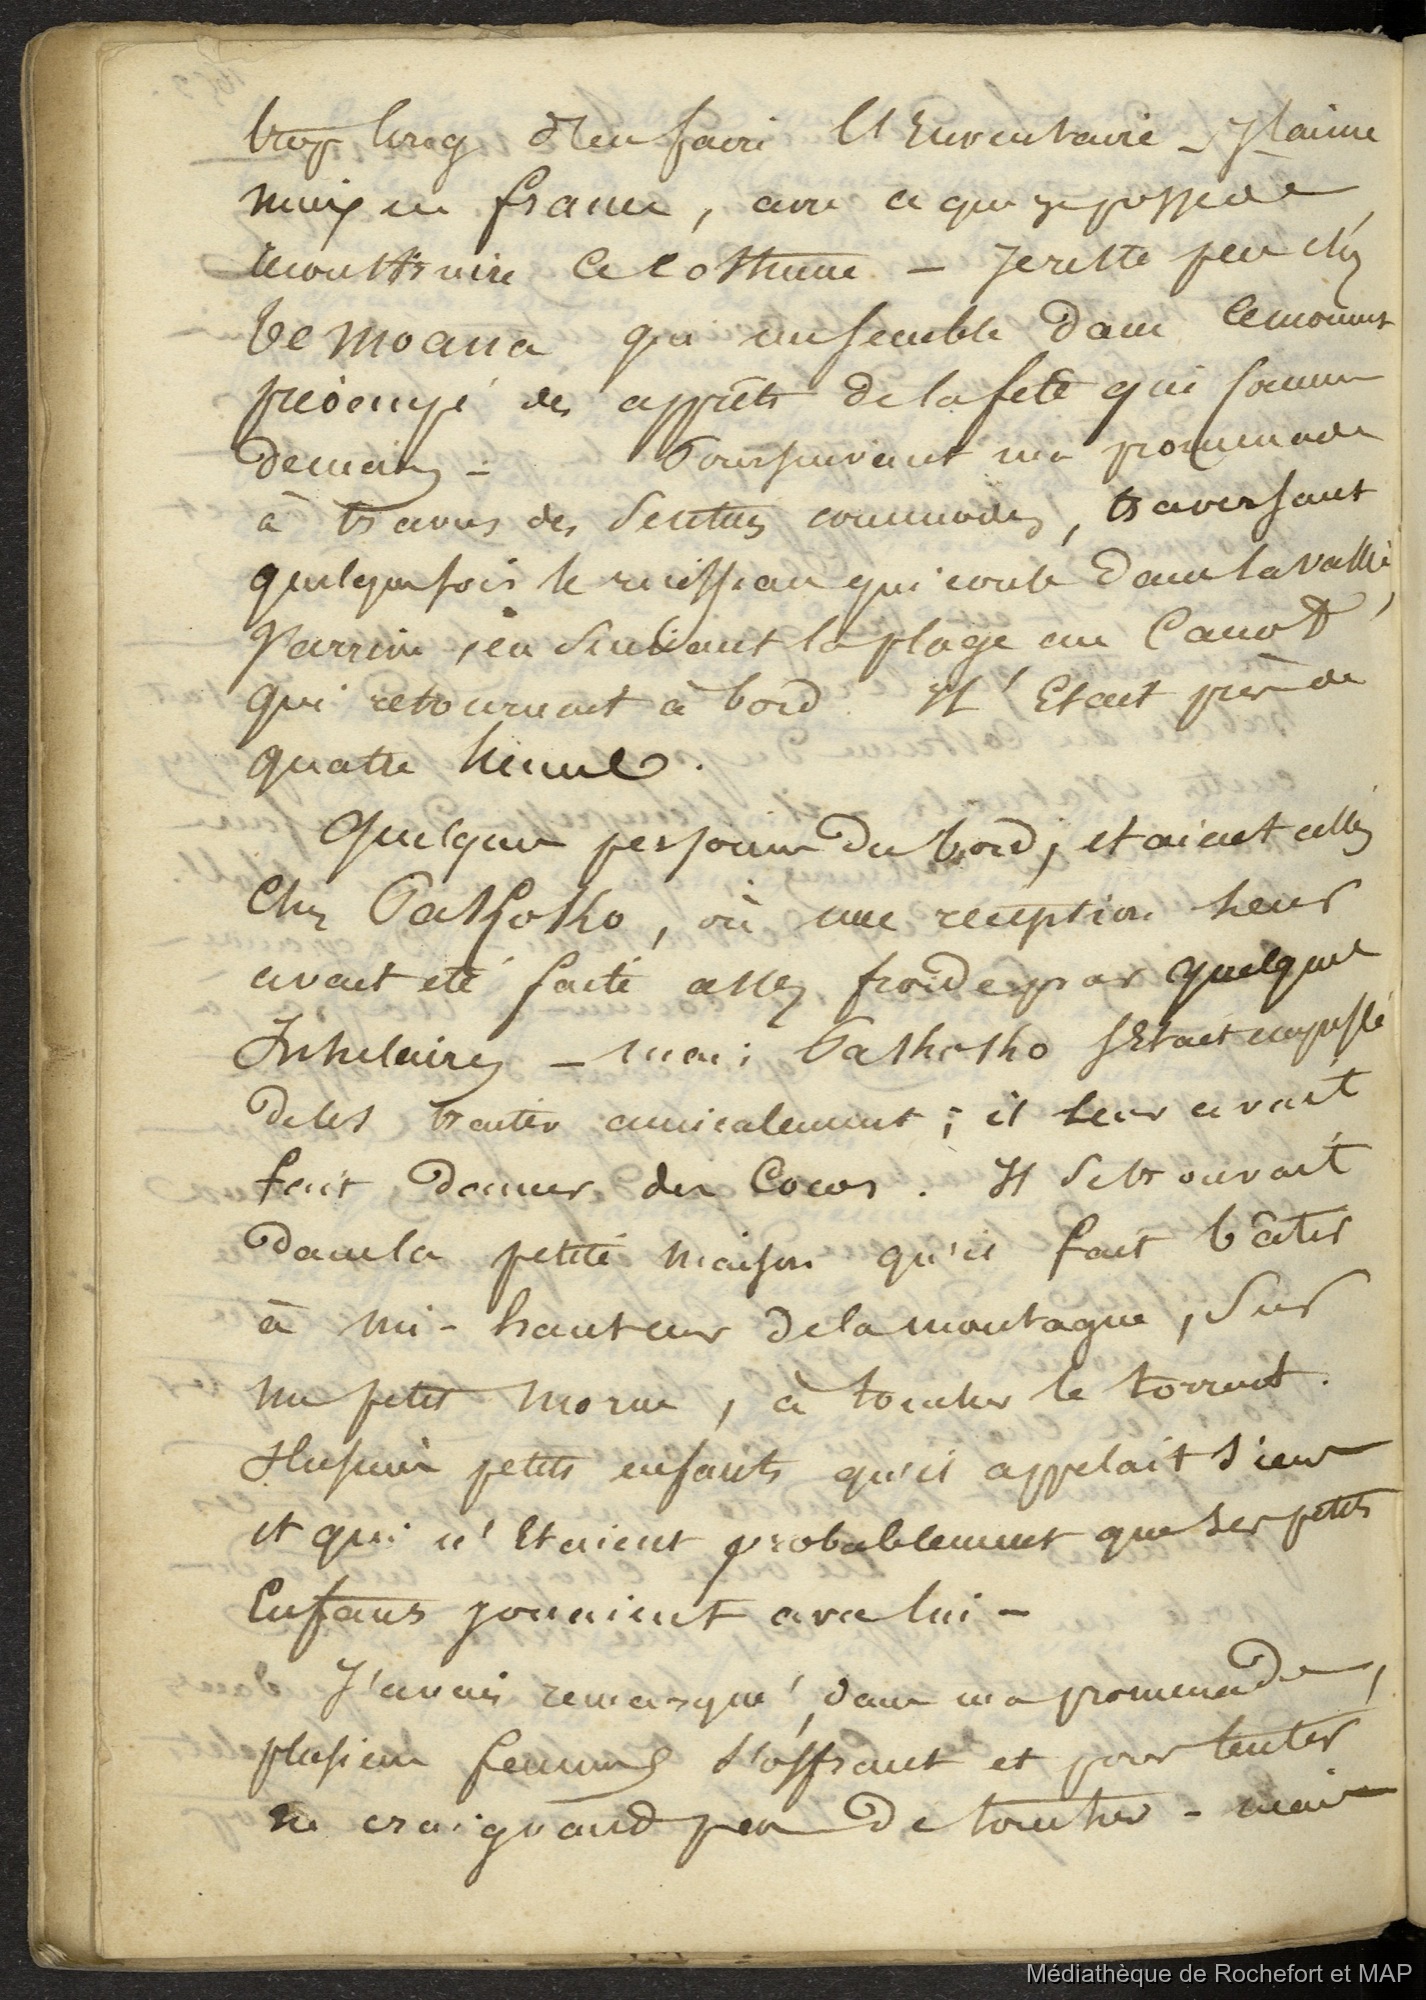 trop long d'en faire l'Enventaire _ J'aime
mieux en france, avec ce que je possede
reconstruire ce costume _ Je reste peu chez
Te Moana qui me semble dans le moment
préocupé des apprêts de la fete qui
demain _ Poursuivant ma promenade
à travers des Sentiers commodes, traversant
quelquefois le ruisseau qui coule dans la vallée,
J'arrive, en Suivant la plage au Canot
qui retournent à bord. Il Etait près de
quatre heures.
Quelques personnes du bord, etaient allées
Chez Pakoko, où une reception leur
avait eté faite assez froide par quelques
Inhulaires _ mais Pakoko s'Etait empressé
de les traiter amicalement ; il leur avait
fait donner des Cocos. Il Se trouvait
dans la petite maison qu'il fait bâtir
à mi-hauteur de la montagne, Sur
un petit morne, à toucher le torrent.
Plusieurs petits enfants qu'il appelait siens
et qui n'Etaient probablement que ses petits
Enfans jouaient avec lui _
J'avais remarqué, dans ma promenade,
plusieurs femmes s'offrant et pour tenter
ne craignand pas de toucher _ mais
Médiathèque de Rochefort et MAP